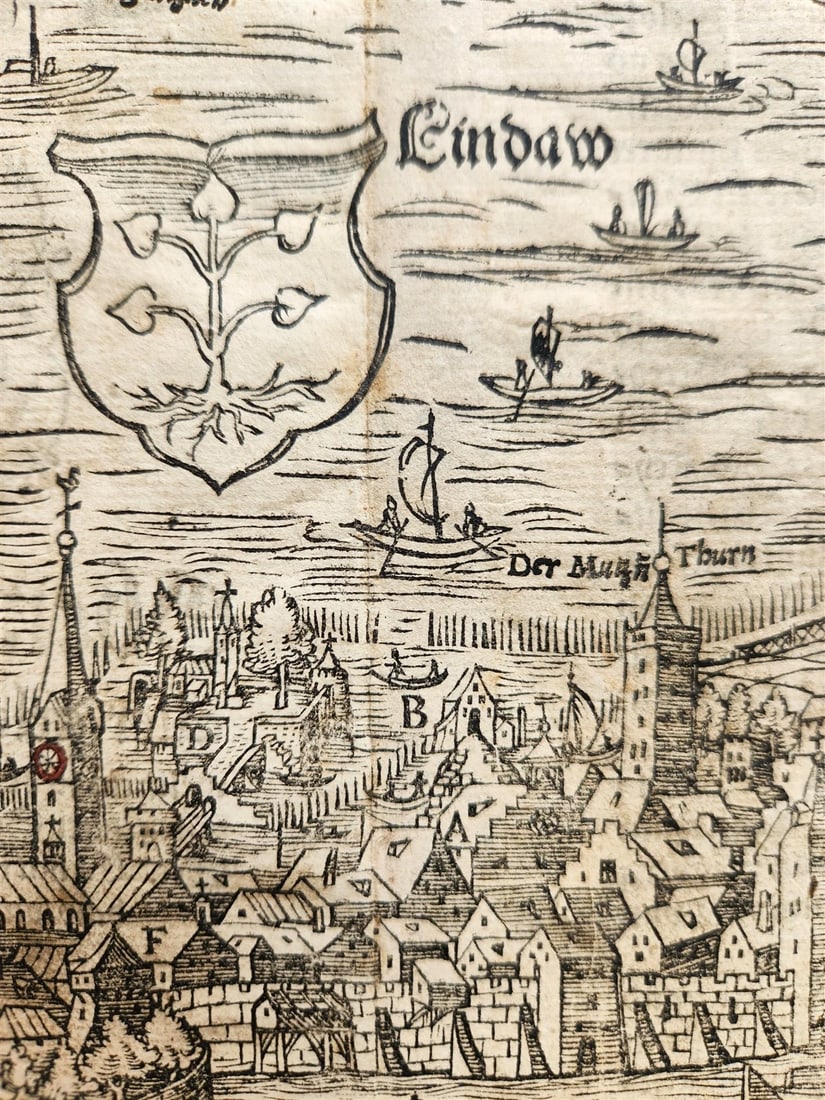 Lindaw
Der Thurn
B
D
A
F